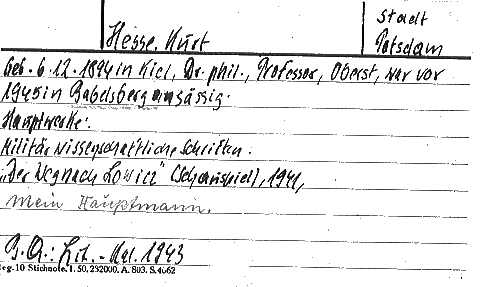 Stadt
Hesse, Kurt Potsdam
Geb. 6.12.1894 in Kiel, Dr. phil., Professor, Oberst, war vor
1945 in Babelsberg ansässig.
Hauptwerke:
Militärwissenschaftliche Schriften.
„Der Weg nach Lowicz" (Schauspiel), 1941,
Mein Hauptmann.
B.Q.: Lit.-Kal. 1943
eg. 10 Stichnote. 1. 50, 232000. A. 803. S. 4662